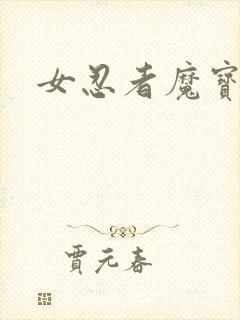 女忍者魔寶
賈元春